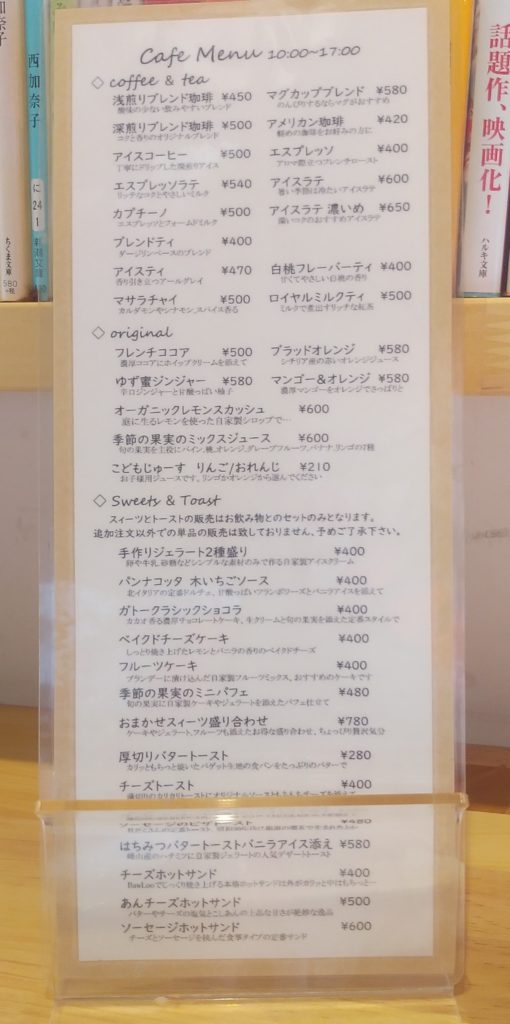 Cafe Menu 10:00~17:00
◇ coffee & tea
浅煎りブレンド珈琲 ¥450
酸味の少ない飲みやすいブレンド
マグカップブレンド ¥580
のんびりするならマグがおすすめ
深煎りブレンド珈琲 ¥500
コクと香りのオリジナルブレンド
アメリカン珈琲 ¥420
軽めの珈琲をお好みの方に
アイスコーヒー ¥500
丁寧にドリップした深煎りアイス
エスプレッソ ¥400
アロマ際立つフレンチロースト
エスプレッソラテ ¥540
リッチなコクとやさしいミルク
アイスラテ ¥600
暑い季節は冷たいアイスラテ
カプチーノ ¥500
エスプレッソとフォームドミルク
アイスラテ 濃いめ ¥650
深いコクのおすすめアイスラテ
ブレンドティ ¥400
ダージリンベースのブレンド
アイスティ ¥470
香り引き立つアールグレイ
白桃フレーバーティ ¥400
甘くてやさしい白桃の香り
マサラチャイ ¥500
カルダモンやシナモン、スパイス香る
ロイヤルミルクティ ¥500
ミルクで煮出すリッチな紅茶
◇ original
フレンチココア ¥500
濃厚ココアにホイップクリームを添えて
ブラッドオレンジ ¥580
シチリア産の赤いオレンジジュース
ゆず蜜ジンジャー ¥580
辛口ジンジャーと甘酸っぱい柚子
マンゴー&オレンジ ¥580
濃厚マンゴーをオレンジでさっぱりと
オーガニックレモンスカッシュ ¥600
庭に生るレモンを使った自家製シロップで…
季節の果実のミックスジュース ¥600
旬の果実を主役にパイン、桃、オレンジ、グレープフルーツ、バナナ、リンゴの7種
こどもじゅーす りんご/おれんじ ¥210
お子様用ジュースです、リンゴかオレンジから選んでください
◇ Sweets & Toast
スィーツとトーストの販売はお飲み物とのセットのみとなります。
追加注文以外での単品の販売は致しておりません、予めご了承下さい。
手作りジェラート2種盛り ¥400
卵や牛乳、砂糖などシンプルな素材のみで作る自家製アイスクリーム
パンナコッタ 木いちごソース ¥400
北イタリアの定番ドルチェ、甘酸っぱいフランボワーズとバニラアイスを添えて
ガトークラシックショコラ ¥400
カカオ香る濃厚チョコレートケーキ、生クリームと旬の果実を添えた定番スタイルで
ベイクドチーズケーキ ¥400
しっとり焼き上げたレモンとバニラの香りのベイクドチーズ
フルーツケーキ ¥400
ブランデーに漬け込んだ自家製フルーツミックス、おすすめのケーキです
季節の果実のミニパフェ ¥480
旬の果実に自家製ケーキやジェラートを添えたパフェ仕立て
おまかせスィーツ盛り合わせ ¥780
ケーキやジェラート、フルーツも添えたお得な盛り合わせ、ちょっぴり贅沢気分
厚切りバタートースト ¥280
カリッともちっと焼いたバゲット生地の食パンをたっぷりのバターで
チーズトースト ¥400
ソーセージのピザトースト ¥480
はちみつバタートーストバニラアイス添え ¥580
峰山産のハチミツに自家製ジェラートの人気デザートトースト
チーズホットサンド ¥400
BawLooでじっくり焼き上げる本格ホットサンドは外がカリッと中はもちっと…
あんチーズホットサンド ¥500
バターやチーズの塩気とこしあんの上品な甘さが絶妙な逸品
ソーセージホットサンド ¥600
チーズとソーセージを挟んだ食事タイプの定番サンド
西加奈子
に
24
1
新潮文庫
ちくま文庫
580
+税
話題作、映画化!
ハルキ文庫